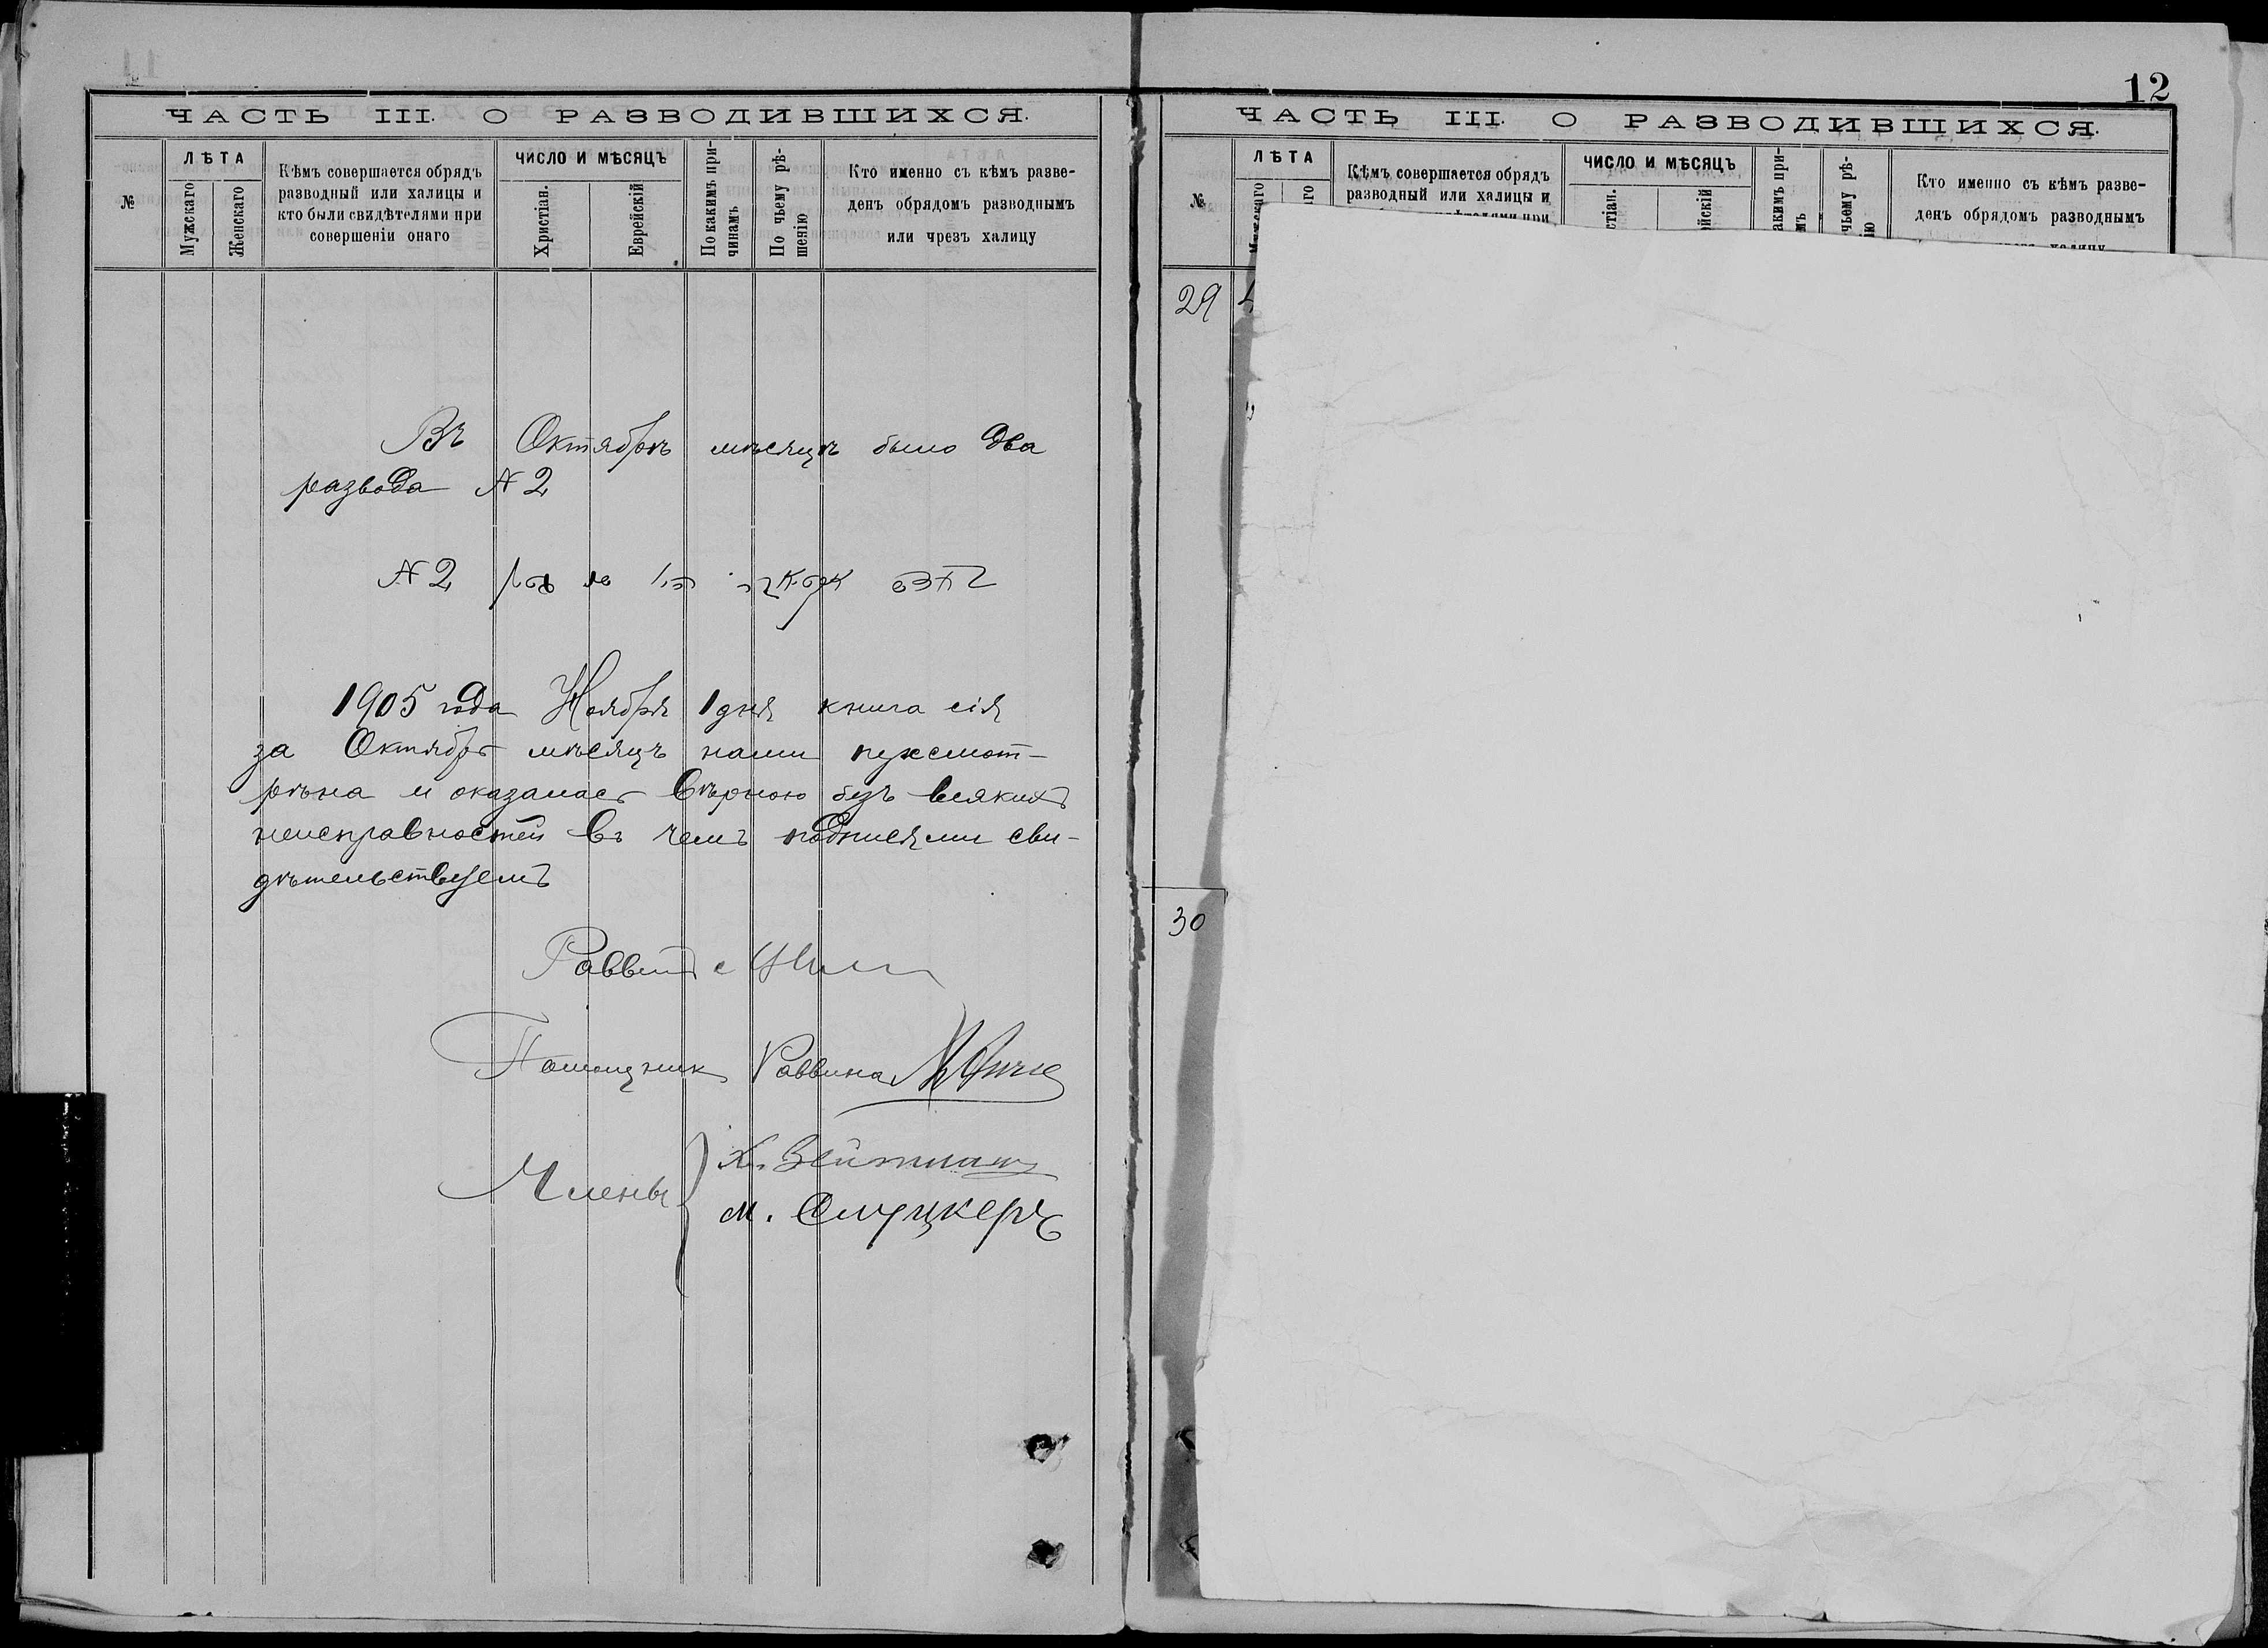 12
ЧАСТЬ III. О РАЗВОДИВШИХСЯ.
№
ЛѢТА
Мужскаго
Женскаго
Кѣмъ совершается обрядъ
разводный или халицы и
кто были свидѣтелями при
совершеніи онаго
ЧИСЛО И МѢСЯЦЪ
Христіан.
Еврейскій
По какимъ при-
чинамъ
По чьему рѣ-
шенію
Кто именно съ кѣмъ разве-
денъ обрядомъ разводнымъ
или чрезъ халицу
Въ Октябрѣ мѣсяцѣ было два
развода № 2
№ 2
1905 года Ноября 1 дня книга сія
за Октябрь мѣсяцъ нами пересмот-
рѣна и оказалась вѣрною безъ всякихъ
неисправностей въ чемъ подписями сви-
дѣтельствуемъ
Раввинъ
Помощник Раввина
Члены
Х. Вейтман
М. Слуцкеръ
ЧАСТЬ III. О РАЗВОДИВШИХСЯ.
№
ЛѢТА
Кѣмъ совершается обрядъ
разводный или халицы и
ЧИСЛО И МѢСЯЦЪ
Кто именно съ кѣмъ разве-
денъ обрядомъ разводнымъ
29
30